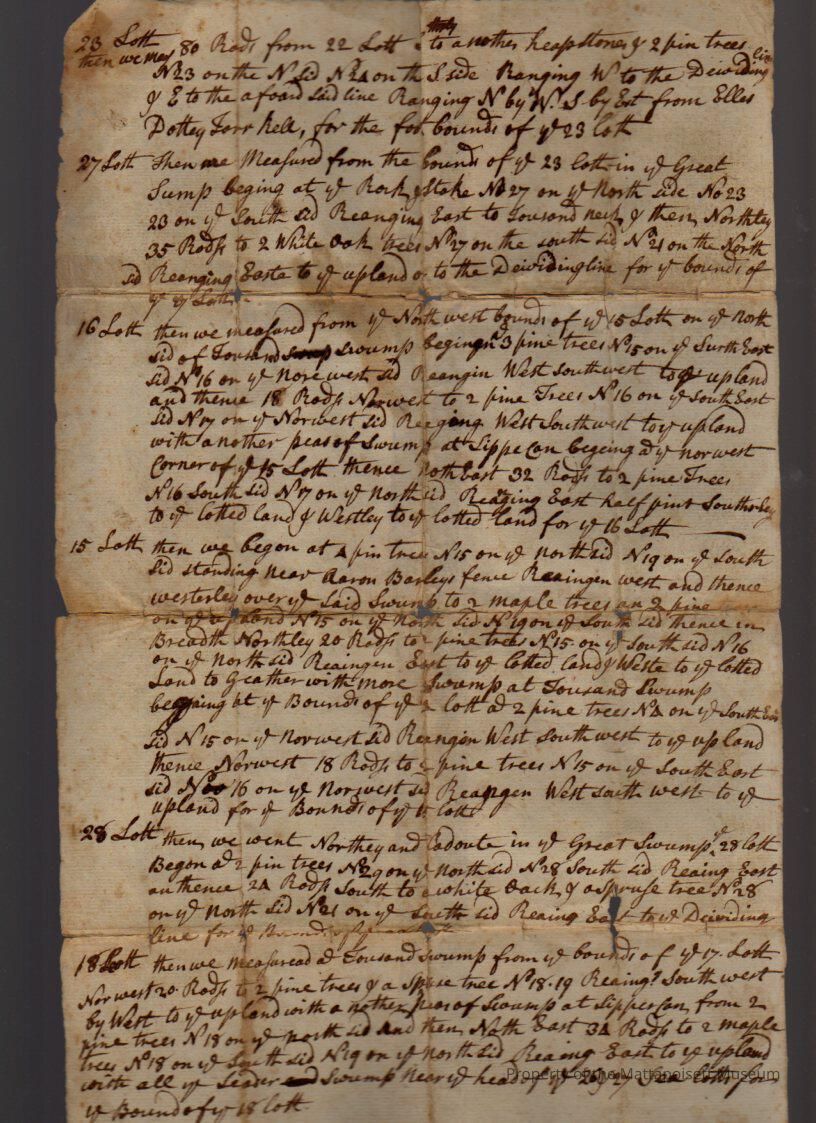 23 Lott
then we mes 80 Rods from 22 Lott to another heap stones & 2 pin trees
N23 on the N sid N24 on the S side Ranging W to the Deividing line
& E to the afoard said line Ranging N by W. S by Est from Elles
Dottey Farr hell, for the bounds of ye 23 lott
27 Lott Then we Measured from the bounds of ye 23 lott in ye Great
Sump beging at ye Rock & Stake No 27 on ye North side No 23
23 on ye South sid Reanging East to Tousand neck & then Northley
35 Rods to 2 White oak trees No 27 on the south sid No 21 on the North
sid Reanging Easte to ye upland or to the Deividing line for ye bounds of
ye 27 Lott
16 Lott then we measured from ye North west bounds of ye 15 Lott on ye north
sid of Tousand swump beging 3 pine trees N15 on ye Surth East
sid No 16 on ye Nore west sid Reangin West Southwest to ye upland
and thence 18 Rods Norwest to 2 pine Trees No 16 on ye South East
sid N17 on ye Norwest sid Reging West Southwest to ye upland
with another peas of Swump at Sippecan begeing at ye norwest
Corner of ye 15 Lott thence Noth East 32 Rods to 2 pine Trees
N16 South sid N17 on ye North sid Reaging East half pint Southerley
to ye lotted land & Westley to ye lotted land for ye 16 Lott
15 Lott then we begon at 4 pin tree N15 on ye north sid N19 on ye South
sid standing near Aaron Barleys fence Reaingen west and thence
westerley over ye said Swump to 2 maple trees an 2 pine
on ye upland N15 on ye North sid N19 on ye South sid thence in
Breadth Northley 20 Rods to 2 pine trees N15 on ye South sid N16
on ye North sid Reaingen East to ye lotted land & Weste to ye lotted
Land to Geather with more Swump at Tousand Swump
beging at ye Bounds of ye 2 lott at 2 pine trees N4 on ye South East
sid N15 on ye Norwest sid Reangin West South west to ye upland
thence Norwest 18 Rods to 2 pine trees N15 on ye South East
sid No 16 on ye Norwest sid Reangen West South west to ye
upland for ye Bounds of ye lott
28 Lott then we went Northey and ladoute in ye Great Swump ye 28 lott
Begon at 2 pin trees No 29 on ye North sid No 28 South sid Reaing East
an thence 24 Rods South to a white oack & a Spruse tree No 28
on ye North sid No 21 on ye South sid Reaing East to ye Deividing
line for ye Bounds of ye
18 Lott then we measuread at Tousand Swump from ye bounds of ye 17 Lott
Norwest 20 Rods to 2 pine trees & a Spruse tree No 18.19 Reaing South west
by West to ye upland with a nother peas of Swump at Sippecan from 2
pine trees N18 on ye north sid And then Noth East 34 Rods to 2 maple
trees No 18 on ye South sid N19 on ye north sid Reaing East to ye upland
with all ye Seader Swump near ye head of ye 26 & 27 lotts for
ye Bounds of ye 18 lott
Property of the Mattapoisett Museum